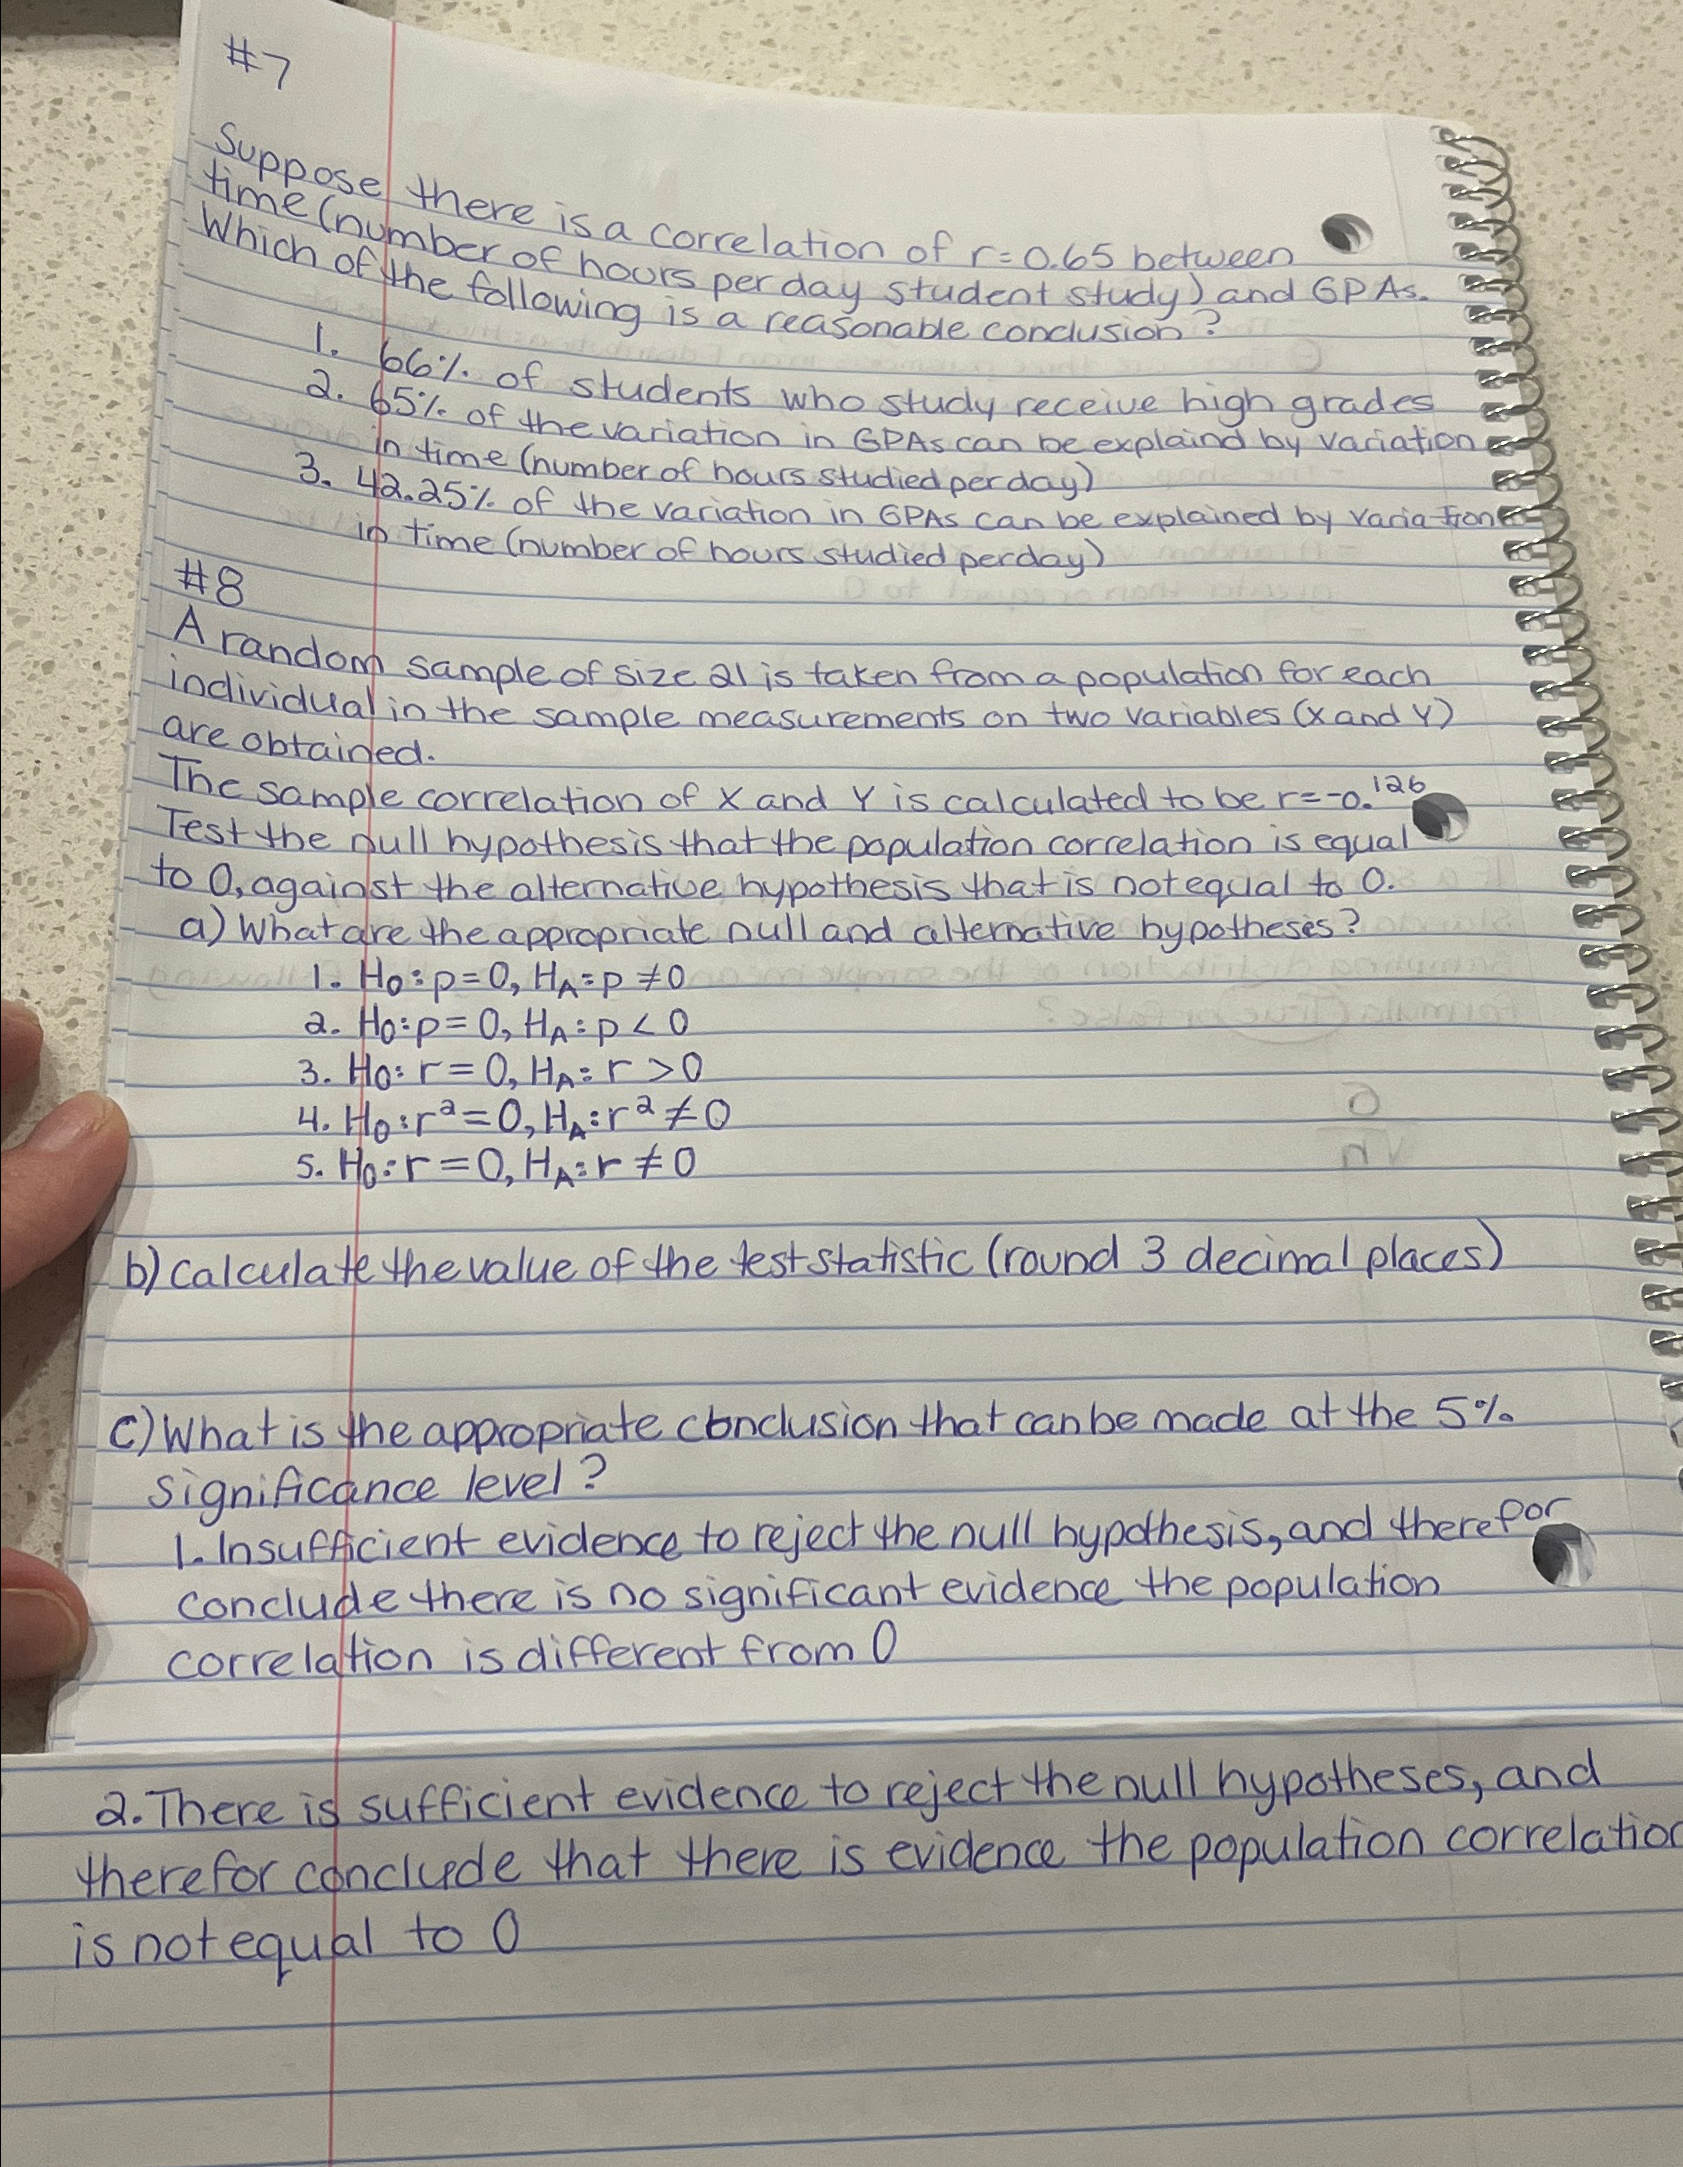 #7
Suppose there is a correlation of r=0.65 between
time (number of hours per day student study) and GPAs.
Which of the following is a reasonable conclusion?
1. 66% of students who study receive high grades
2. 65% of the variation in GPAs can be explaind by variation
in time (number of hours studied per day)
3. 42.25% of the variation in GPAs can be explained by variation
in time (number of hours studied per day)
#8
A random sample of size 21 is taken from a population for each
individual in the sample measurements on two variables (X and Y)
are obtained.
The sample correlation of X and Y is calculated to be r=-0.126
Test the null hypothesis that the population correlation is equal
to 0, against the alternative hypothesis that is not equal to 0.
a) What are the appropriate null and alternative hypotheses?
1. H₀:p=0, Hₐ:p≠0
2. H₀:p=0, Hₐ:p<0
3. H₀:r=0, Hₐ:r>0
4. H₀:r²=0, Hₐ:r²≠0
5. H₀:r=0, Hₐ:r≠0
b) Calculate the value of the test statistic (round 3 decimal places)
c) What is the appropriate conclusion that can be made at the 5%
significance level?
1. Insufficient evidence to reject the null hypothesis, and therefor
conclude there is no significant evidence the population
correlation is different from 0
2. There is sufficient evidence to reject the null hypotheses, and
therefor conclude that there is evidence the population correlation
is not equal to 0